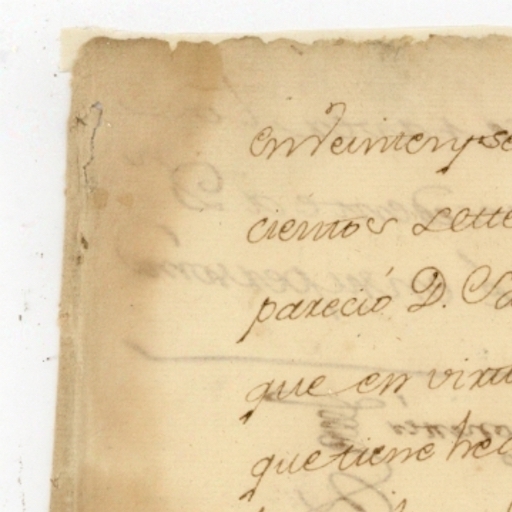 en veinte y se
cientos sette
parecio D. Sa
que en virtu
que tiene hec